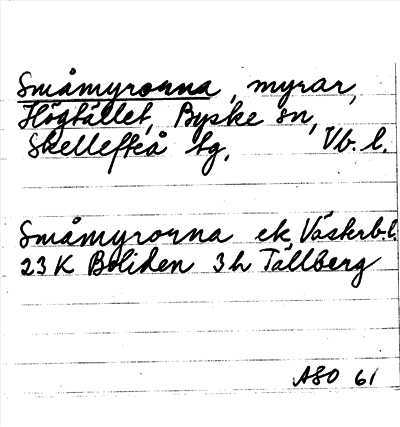 Småmyrorna, myrar,
Högfället, Byske sn,
Skellefteå tg. Vb. l.
Småmyrorna ek Västerb.l.
23 K Boliden 3h Tällberg
ASO 61